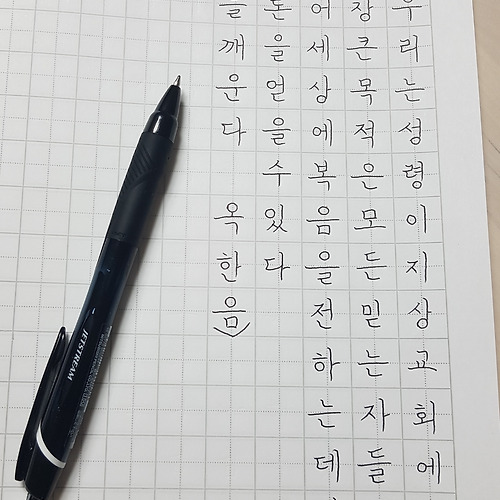 우리는 성령이 지상교회에
장 큰 목적은 모든 믿는 자들
어 세상에 복음을 전하는데
을 얻을 수 있다
깨운다 옥한흠
JETSTREAM